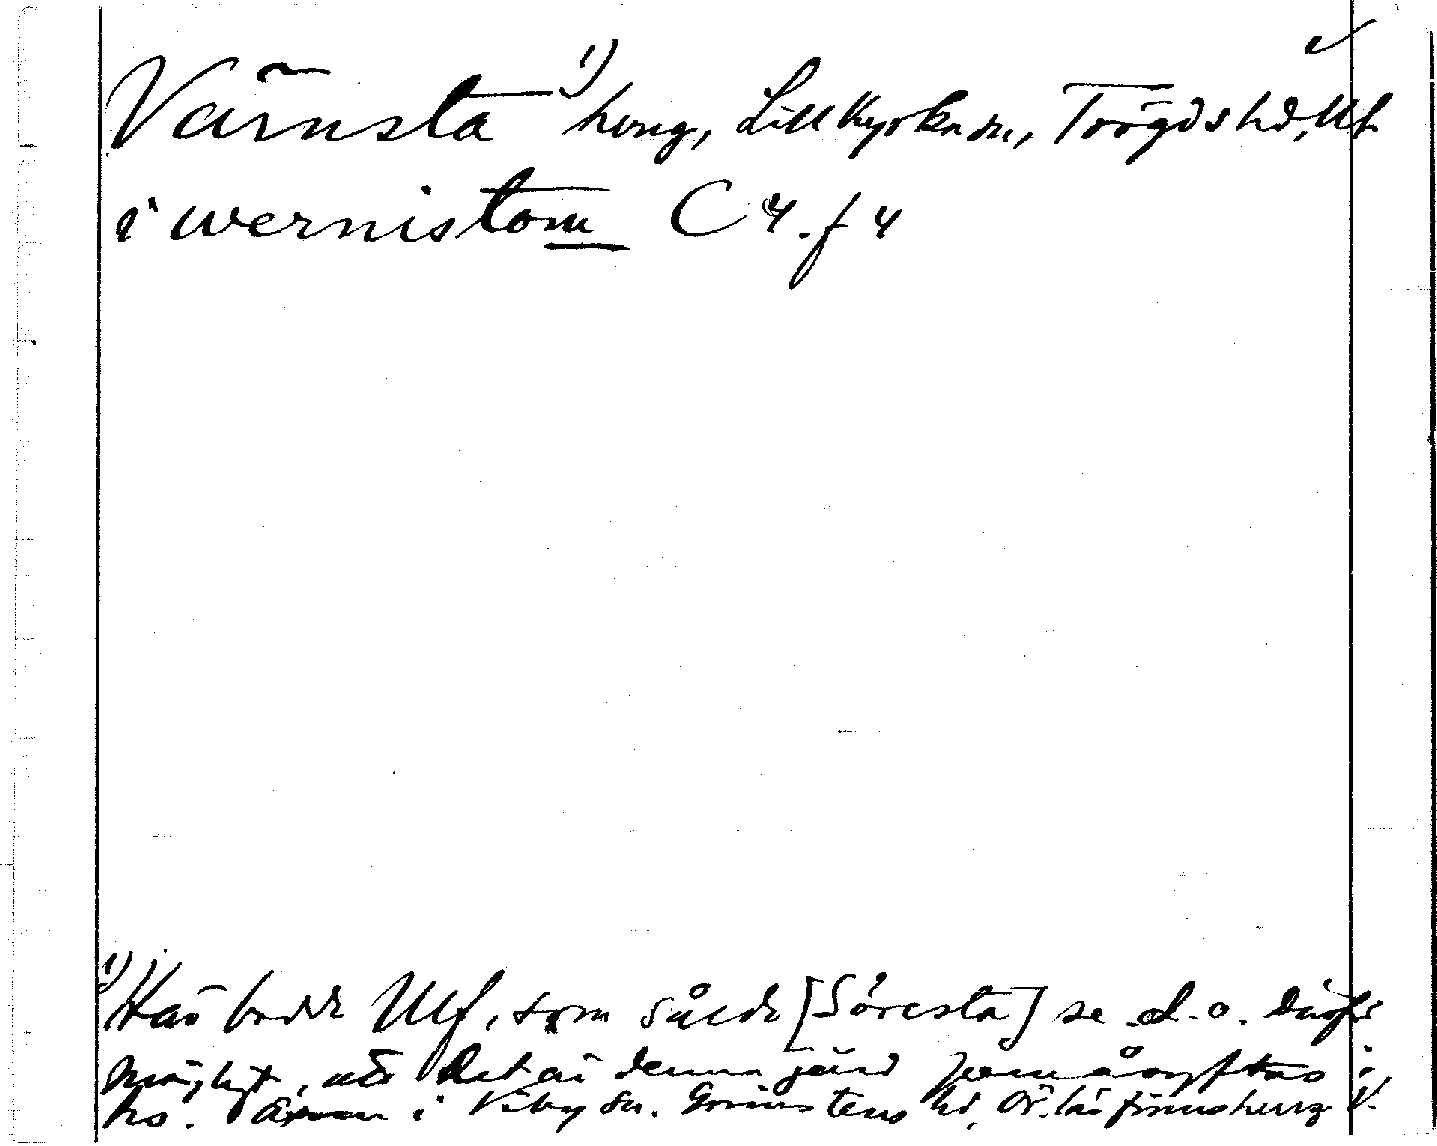 Värnsta 1) herrg, Lillkyrka sn, Trögds hd, Upl.
i wernistom C 4. f 4
1) Här bodde Ulf, som sålde [Söresta] se d. o. Därför
möjligt, att det är denna gård som åsyftas i
hs. även i Viby sn. Grimstens hd, Ör. län finns herrg V.